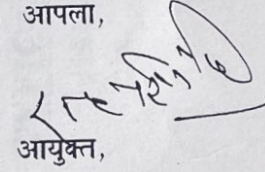 आपला,
आयुक्त,